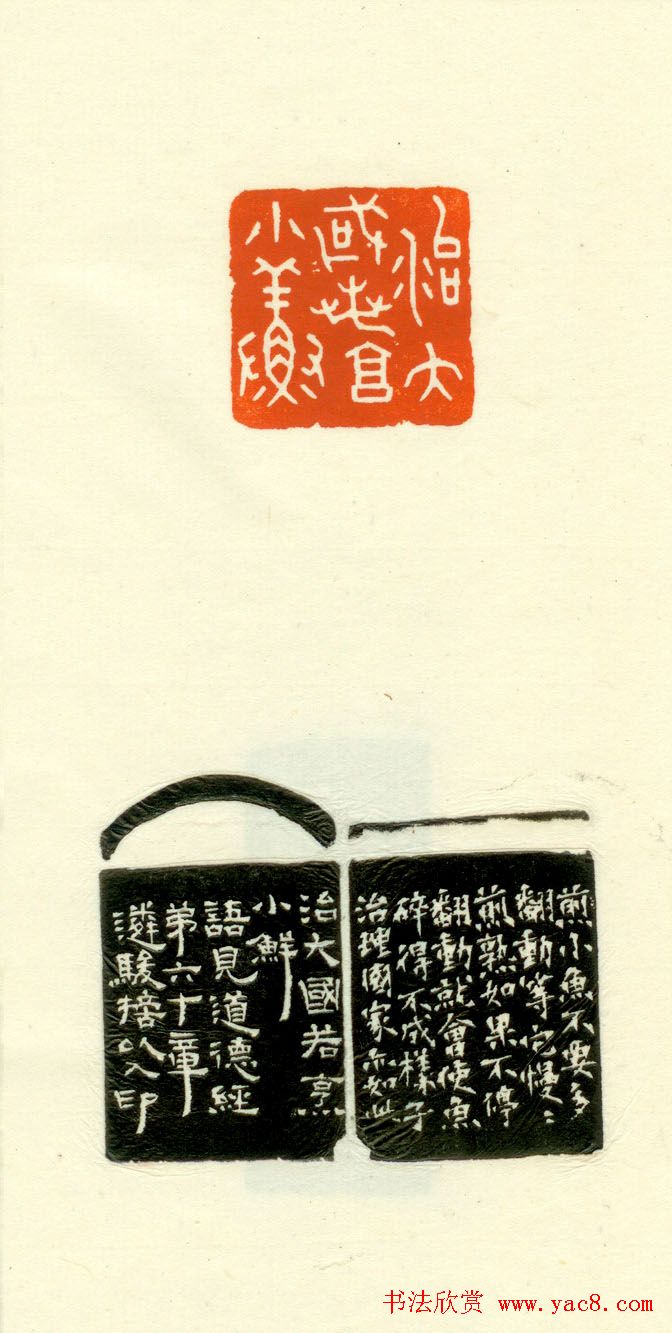 治大
國若亯
小鮮
煎小魚不要多
翻動等它慢〻
煎熟如果不停
翻動就會使魚
碎得不成樣子
治理國家亦如此
治大國若烹
小鮮
語見道德經
第六十章
駿以入印
书法欣赏 www.yac8.com